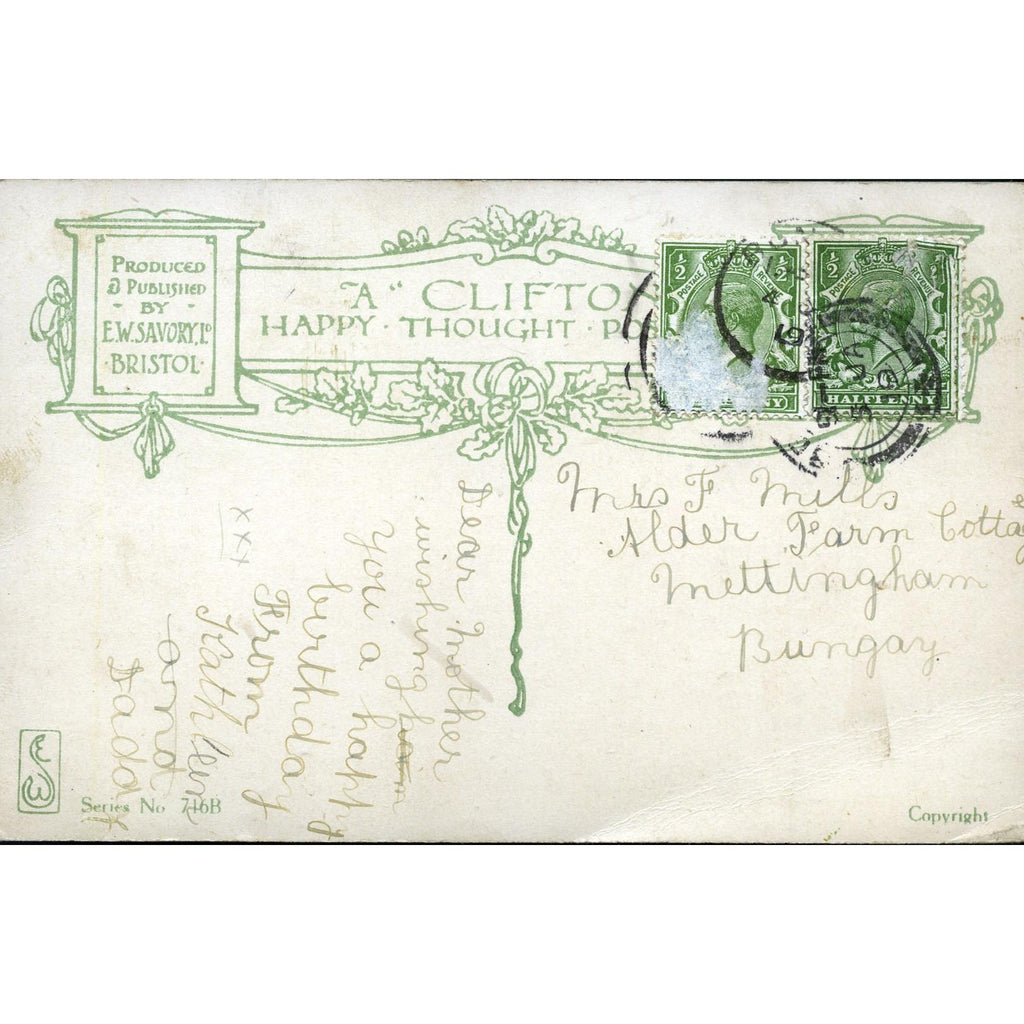 PRODUCED
& PUBLISHED
BY
E.W. SAVORY, LD
BRISTOL
"A" CLIFTO
HAPPY · THOUGHT · PO
1/2 POSTAGE REVENUE 1/2
1/2 POSTAGE REVENUE
HALFPENNY
Mrs F Mills
Alder Farm Cotta
Mettingham
Bungay
Dear Mother
wishing
you a happy
birthday
From
Kathleen
and
Daddy
xxx
Series No 716B
Copyright